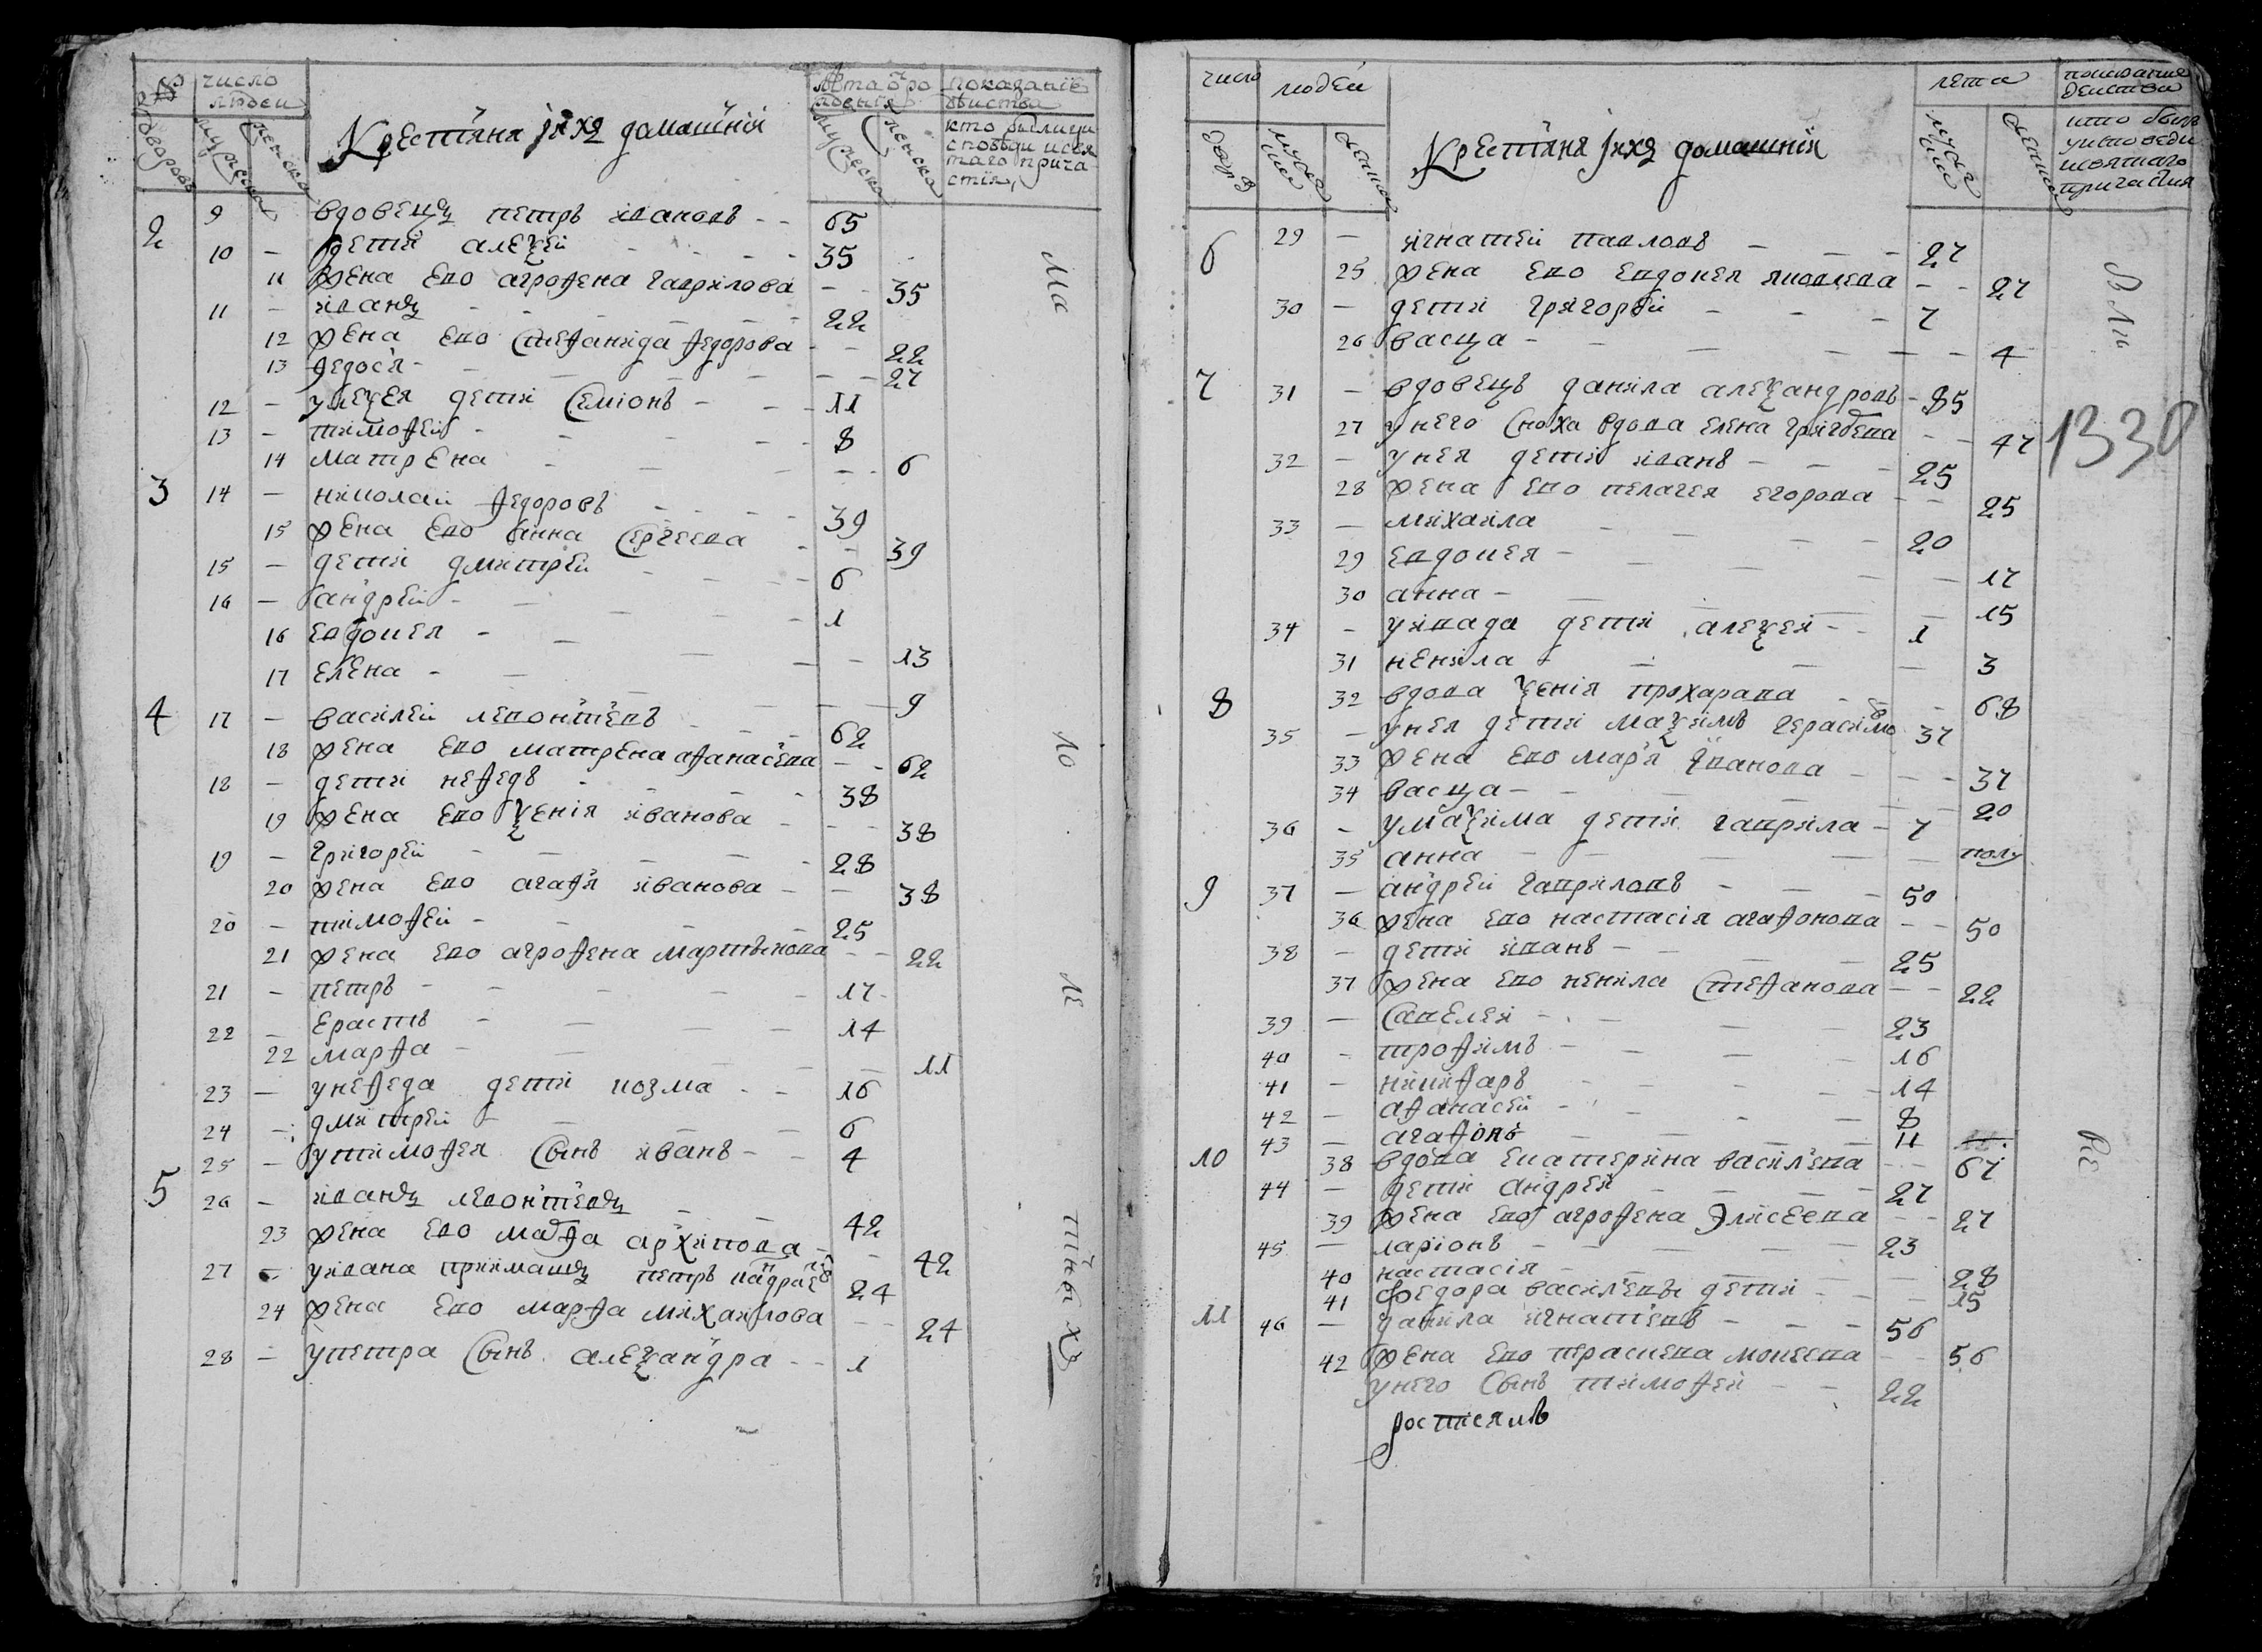 число людей
дворовъ мужска женска
Крестьяня ихъ домашнія
лѣта о рождения
мужеска женска
показаніе дѣиства
кто был у исповѣди и святаго причастія,
2 9 вдовецъ петръ ивановъ - - 65
10 - дети алеѯеи - - - 35
11 жена ево агрофена гаврилова - - 35
11 - иванъ - - - 22
12 жена ево стефанида федорова - - 22
13 федося - - - 27
12 - у алеѯея дети семіонъ - - 11
13 - тимофеи - - - 8
14 матрена - - - 6
3 14 - николаи федоровъ - - - 39
15 жена ево анна сергеева - - 39
15 - дети дмитреи - - - 6
16 - андреи - - - 1
16 евдокея - - - 13
17 елена - - - 9
4 17 - василеи левонтьевъ - - 62
18 жена ево матрена афанасева - - 62
18 - дети нефедъ - - - 38
19 жена ево ѯенія иванова - - - 38
19 - григореи - - - 28
20 жена ево агафя иванова - - 38
20 - тимофеи - - - 25
21 жена ево агрофена мартынова - - 22
21 - петръ - - - 17
22 - ерастъ - - - 14
22 марфа - - - 11
23 - у нефеда дети козма - - 16
24 - дмитреи - - - 6
25 - у тимофея сынъ иванъ - - 4
5 26 - иванъ левонтевъ - - 42
23 жена ево марфа архипова - - 42
27 - у ивана приимашъ петръ 24
24 жена ево марфа михаилова - - 24
28 - у петра сынъ алеѯандра - - 1
ма
ло
ле
тныхъ
число людей
дворъ мужски женски
Крестьяня ихъ домашнія
лета
мужски женски
показание деиства
кто былъ у исповеди и святаго причастия
6 29 - игнатеи павловъ - - - 27
25 жена ево евдокея яковлева - - 27
30 - дети григореи - - - 7
26 васща - - - 4
7 31 - вдовецъ данила алеѯандровъ - 85
27 у него сноха вдова елена григоева - - 47
32 - у нея дети иванъ - - - 25
28 жена ево пелагея егорова - - 25
33 - михаила - - - 20
29 евдокея - - - 17
30 анна - - - 15
34 - у ивада дети алеѯеи - - 1
31 ненила - - - 3
8 32 вдова ѯенія прохарава - - 68
35 - у нея дети маѯимъ герасимовъ 37
33 жена ево маря іванова - - - 37
34 васща - - - 20
36 - у маѯима дети гаврила - 7
35 анна - - - полу
9 37 - андреи гавриловъ - - - 50
36 жена ево настасія агафонова - - 50
38 - дети иванъ - - - 25
37 жена ево ненила стефанова - - 22
39 - савелеи - - - 23
40 - трофимъ - - - 16
41 - никифаръ - - - 14
42 - афанасеи - - - 8
43 - агафонъ - - - 11
10 38 вдова екатерина василева - - 67
44 - дети андреи - - - 27
39 жена ево агрофена элисеева - - 27
45 - ларіонъ - - - 23
40 настасія - - - 28
41 федора василевы дети - - - 15
11 46 - данила игнатевъ - - - 56
42 жена ево параскева мокеева - - 56
у него сынъ тимофеи - - 22
1330